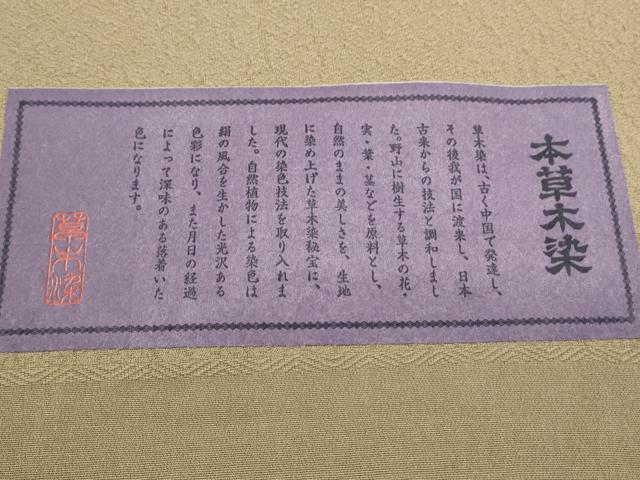 本草木染
草木染は、古く中国で発達し、
その後我が国に渡来し、日本
古来からの技法と調和しまし
た。野山に樹生する草木の花・
実・葉・茎などを原料とし、
自然のままの美しさを、生地
に染め上げた草木染秘宝に、
現代の染色技法を取り入れま
した。自然植物による染色は
絹の風合を生かした光沢ある
色彩になり、また月日の経過
によって深味のある落着いた
色になります。
草木染